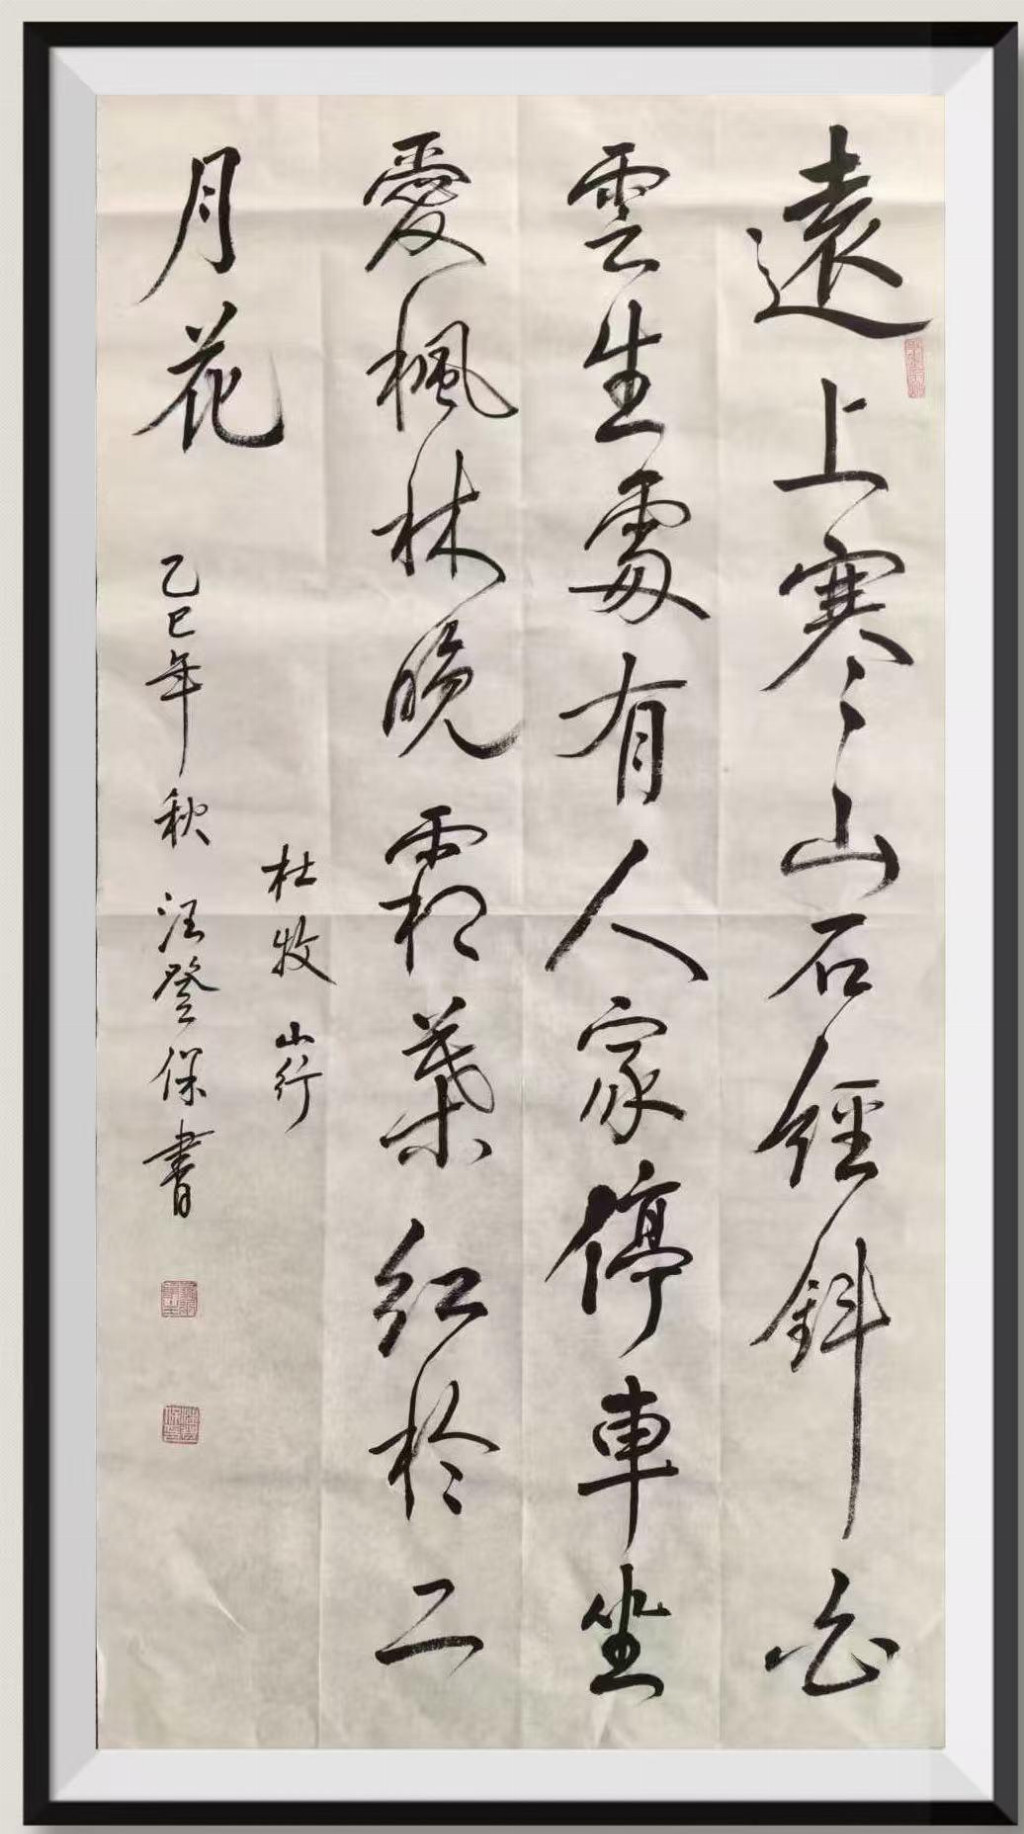 遠上寒山石徑斜白
雲生處有人家停車坐
愛楓林晚霜葉红於二
月花
杜牧 山行
乙巳年秋 汪登保書